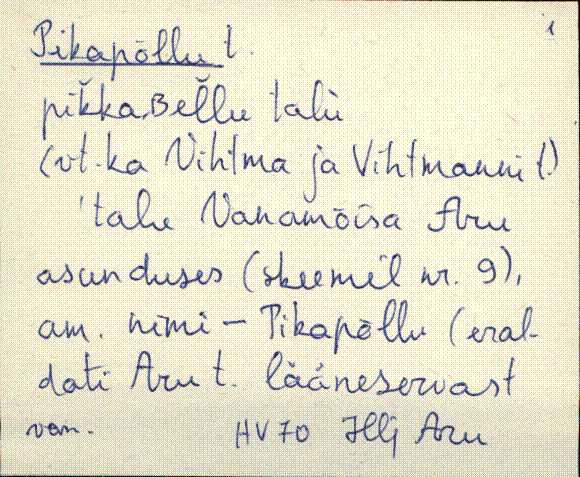 1
Pikapõllu t.
pikka,Bellu talu
(vt. ka Vihtma ja Vihtmanni t.)
'talu Vanamõisa Aru
asunduses (skeemil nr. 9),
am. nimi – Pikapõllu (eral-
dati Aru t. lääneservast
van. HV 70 Illj Aru